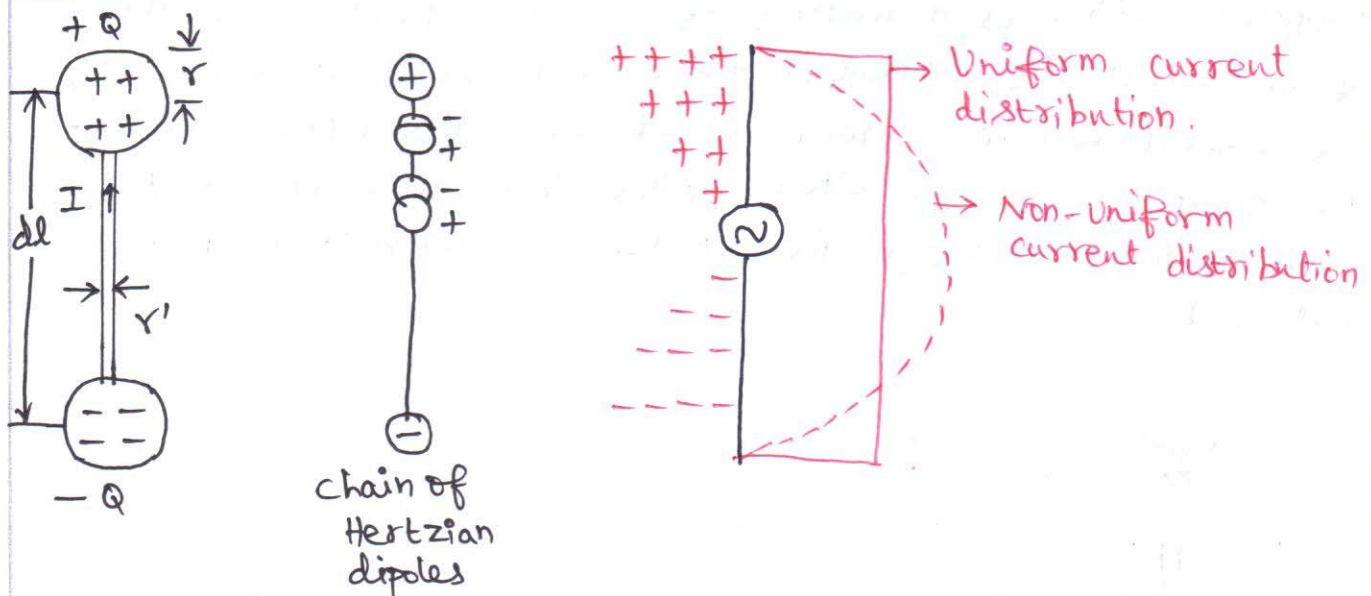 + Q
r
+ +
+ +
dl
I
r'
– –
– –
– Q
+
-
+
-
+
–
Chain of
Hertzian
dipoles
+ + + +
+ + +
+ +
+
~
–
– –
– – –
– – – –
Uniform current
distribution.
Non-uniform
current distribution